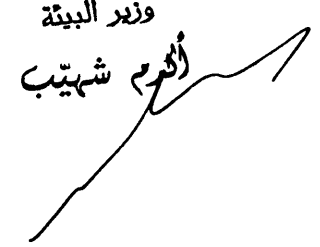 وزير البيئة
أكرم شهيّب